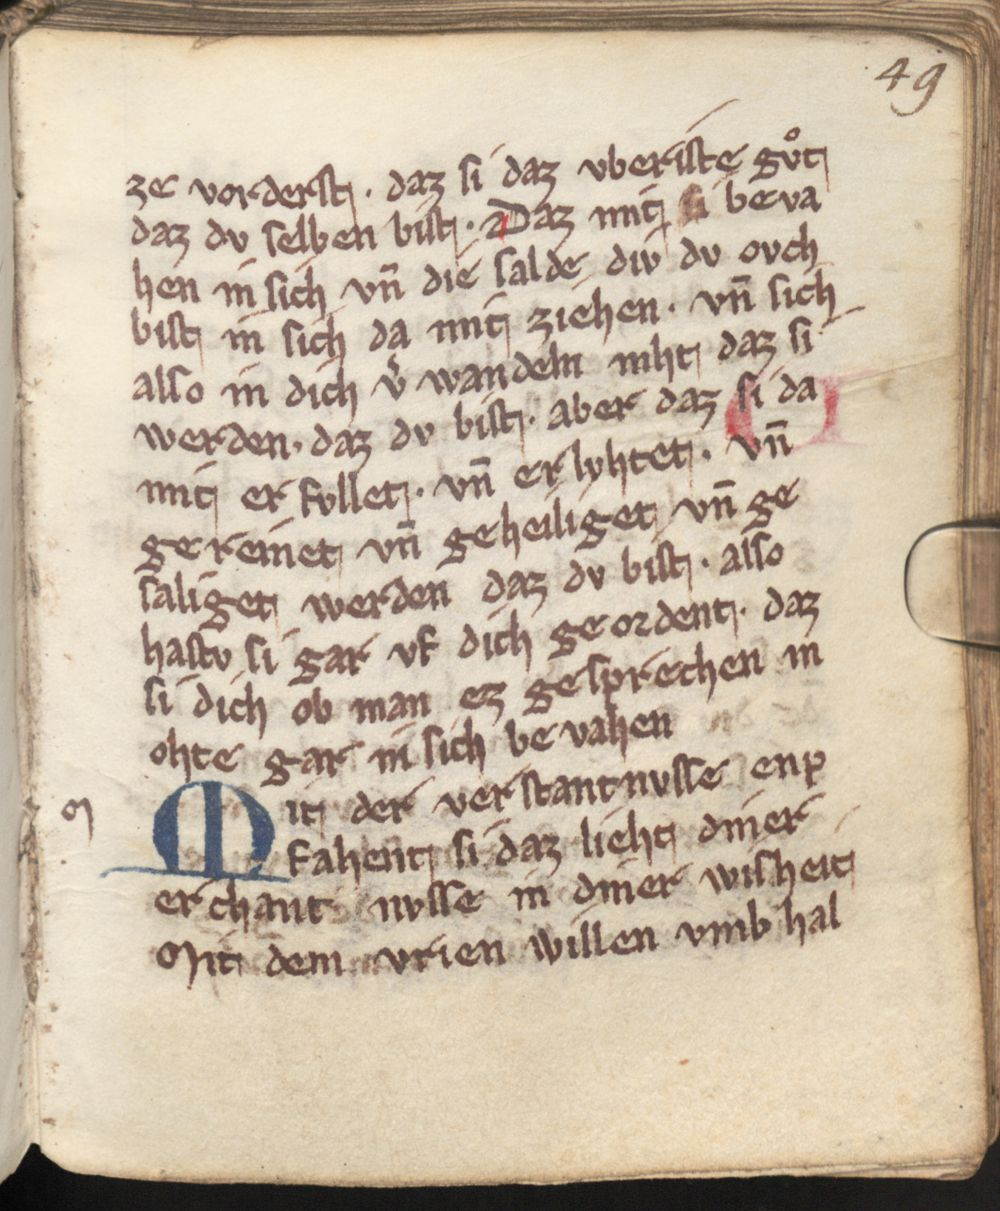 49
ze vorderst. daz si daz vberiste gůt
daz dv selben bist. Daz mit si beva
hen in sich vn̄ die salde div dv ovch
bist in sich da mit ziehen. vn̄ sich
also in dich v̉ wandeln niht daz si
werden. daz dv bist. aber daz si da
mit er fvllet. vn̄ er lvhtet. vn̄
gereinet vn̄ geheiliget vn̄ ge
saliget werden daz dv bist. also
hastv si gar vf dich geordent. daz
si dich ob man ez gesprechen m
ohte gar in sich be vahen
m
Mit der verstantnvsse enp
fahent si daz lieht diner
erchant nvsse in diner wisheit
Mit dem vrien willen vmb hal